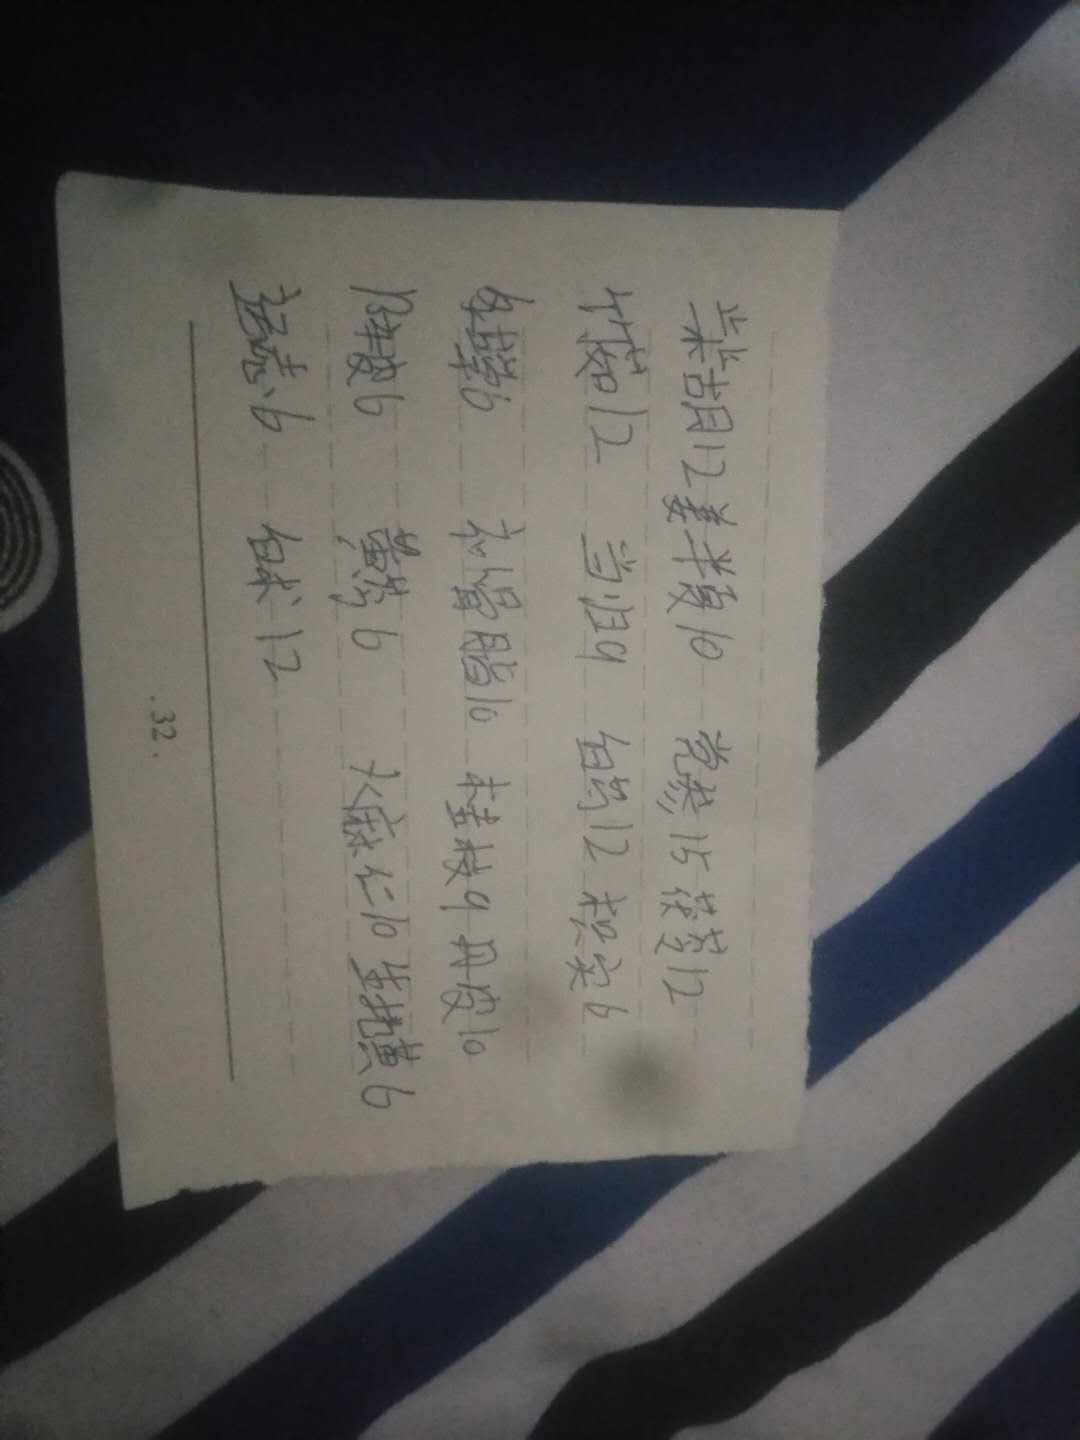 柴胡12 姜半夏10 党参15 茯苓12
竹茹12 当归9 白芍12 枳实6
6 补骨脂10 桂枝9 丹皮10
陈皮6 黄芩6 火麻仁10 生地黄6
远志6 白术12
.32.